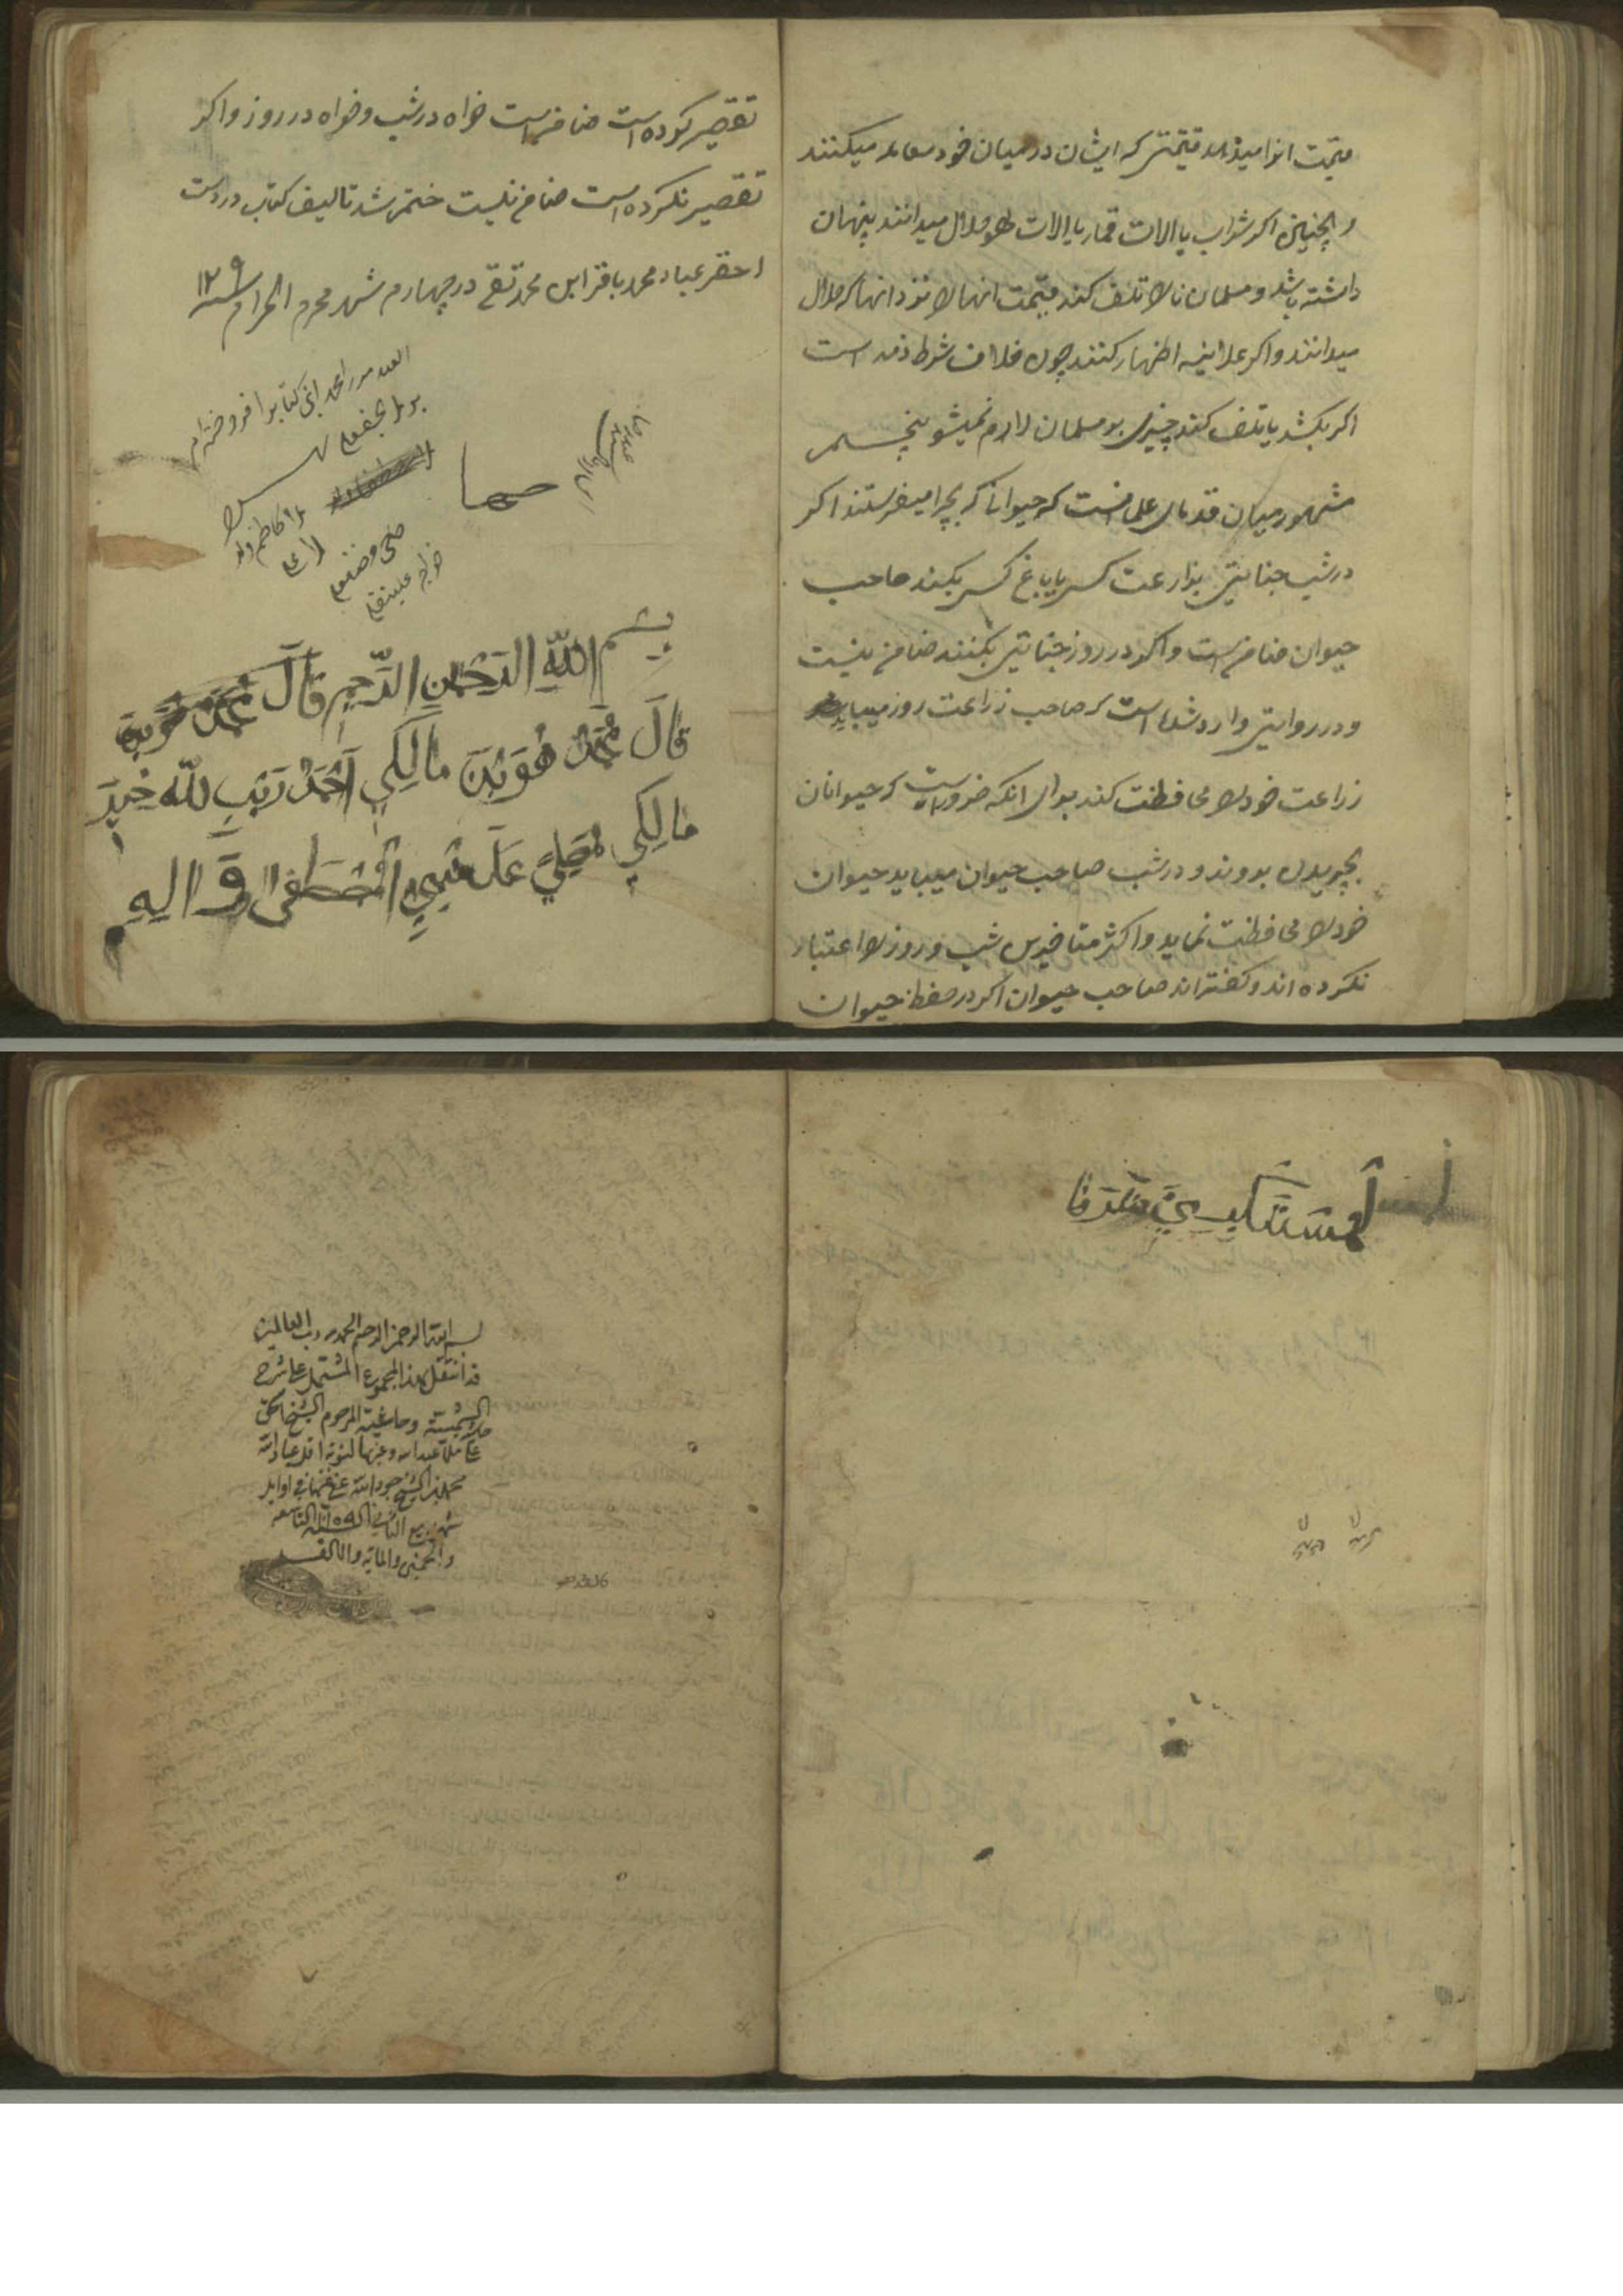 قیمت انرا میدهد قیمتی که ایشان در میان خود معامله میکنند
و همچنین اکر شراب یا الات قمار یا الات لهو حلال میدانند پنهان
داشته باشد و مسلمان انها را تلف کند قیمت انها را نزد انها که حلال
میدانند و اکر علانیه اظهار کنند چون خلاف شرط ذمه است
اکر بکشد یا تلف کند چیزی بر مسلمان لازم نمیشود پنجم
مشهور میان قدمای علما انست که حیوانی که بچرا میفرستند اکر
در شب جنایتی بزراعت کسی یا باغ کسی بکند صاحب
حیوان ضامن است و اکر در روز جنایتی بکنند ضامن نیست
و در روایتی وارد شده است که صاحب زراعت روز میباید
زراعت خود را محافظت کند برای انکه ضرور است که حیوانان
بچریدن بروند و در شب صاحب حیوان میباید حیوان
خود را محافظت نماید و اکثر متاخرین شب و روز را اعتبار
نکرده اند و کفته اند صاحب حیوان اکر در حفظ حیوان
تقصیر کرده است ضامن است خواه در شب و خواه در روز و اکر
تقصیر نکرده است ضامن نیست ختم شد تالیف کتاب در دست
احقر عباد محمد باقر ابن محمد تقی در چهارم شهر محرم الحرام
بسم الله الرحمن الرحیم قال محمد
قال محمد هو بن مالك احمد ربي الله خير
مالك مصليا على النبي المصطفى و اله
المستكملين الشرفا
بسم الله الرحمن الرحيم الحمد لله رب العالمين
قد انتقل هذا المجموع المشتمل على شرح
الشمسية وحاشية المرحوم الشيخ
على ملا عبدالله وغيرها لنوبة اقل عباد الله
محمد بن الشيخ جود الله عفي عنهما في اوايل
شهر ربيع الثاني السنة التاسعة
والخمسين والماية والالف